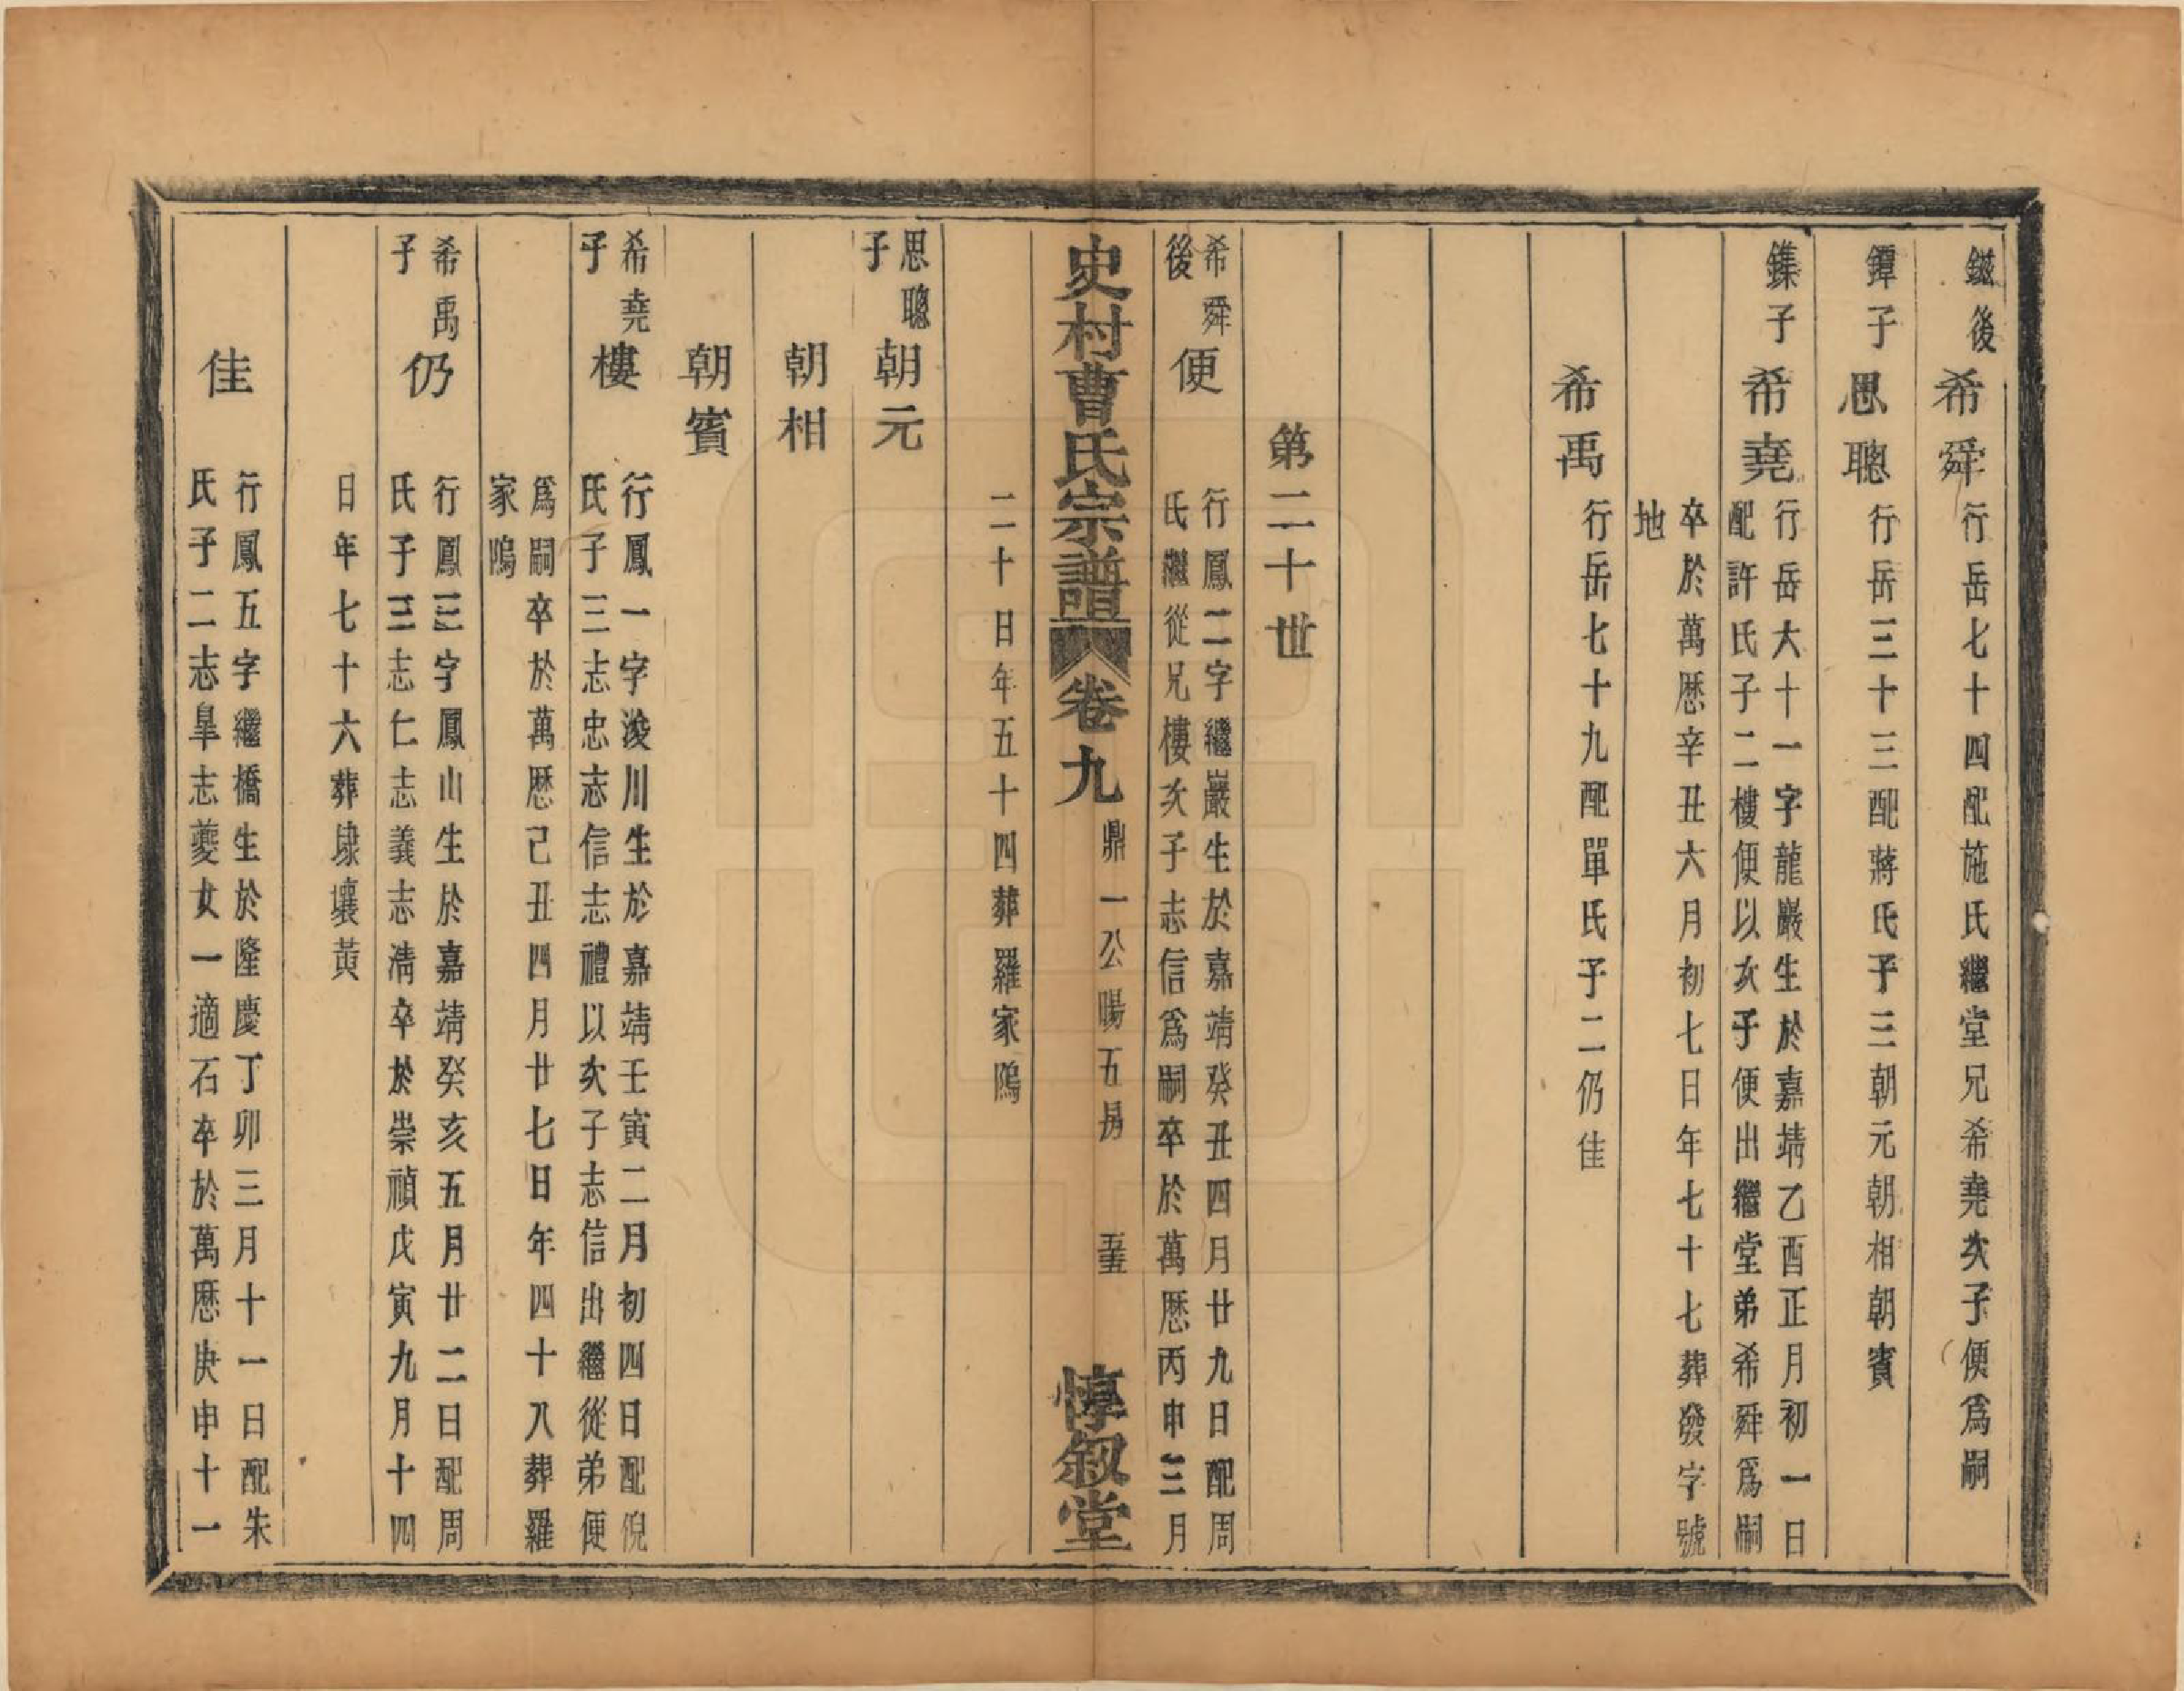 鎡後
希舜
行岳七十四配施氏繼堂兄希堯次子便爲嗣
鐔子
思聰
行岳三十三配蔣氏子三朝元朝相朝賓
鏶子
希堯
行岳大十一字龍巖生於嘉靖乙酉正月初一日
配許氏子二樓便以次子便出繼堂弟希舜爲嗣
卒於萬歷辛丑六月初七日年七十七葬發字號
地
希禹
行岳七十九配單氏子二仍佳
第二十世
希舜
後
便
行鳳二字繼巖生於嘉靖癸丑四月廿九日配周
氏繼從兄樓次子志信爲嗣卒於萬歷丙申三月
史村曹氏宗譜
卷九
鼎一公暘五房
五
惇敘堂
二十日年五十四葬羅家隝
思聰
子
朝元
朝相
朝賓
希堯
子
樓
行鳳一字浚川生於嘉靖壬寅二月初四日配倪
氏子三志忠志信志禮以次子志信出繼從弟便
爲嗣卒於萬歷己丑四月廿七日年四十八葬羅
家隝
希禹
子
仍
行鳳三字鳳山生於嘉靖癸亥五月廿二日配周
氏子三志仁志義志淸卒於崇禎戊寅九月十四
日年七十六葬埭壤黃
佳
行鳳五字繼橋生於隆慶丁卯三月十一日配朱
氏子二志臯志夔女一適石卒於萬歷庚申十一